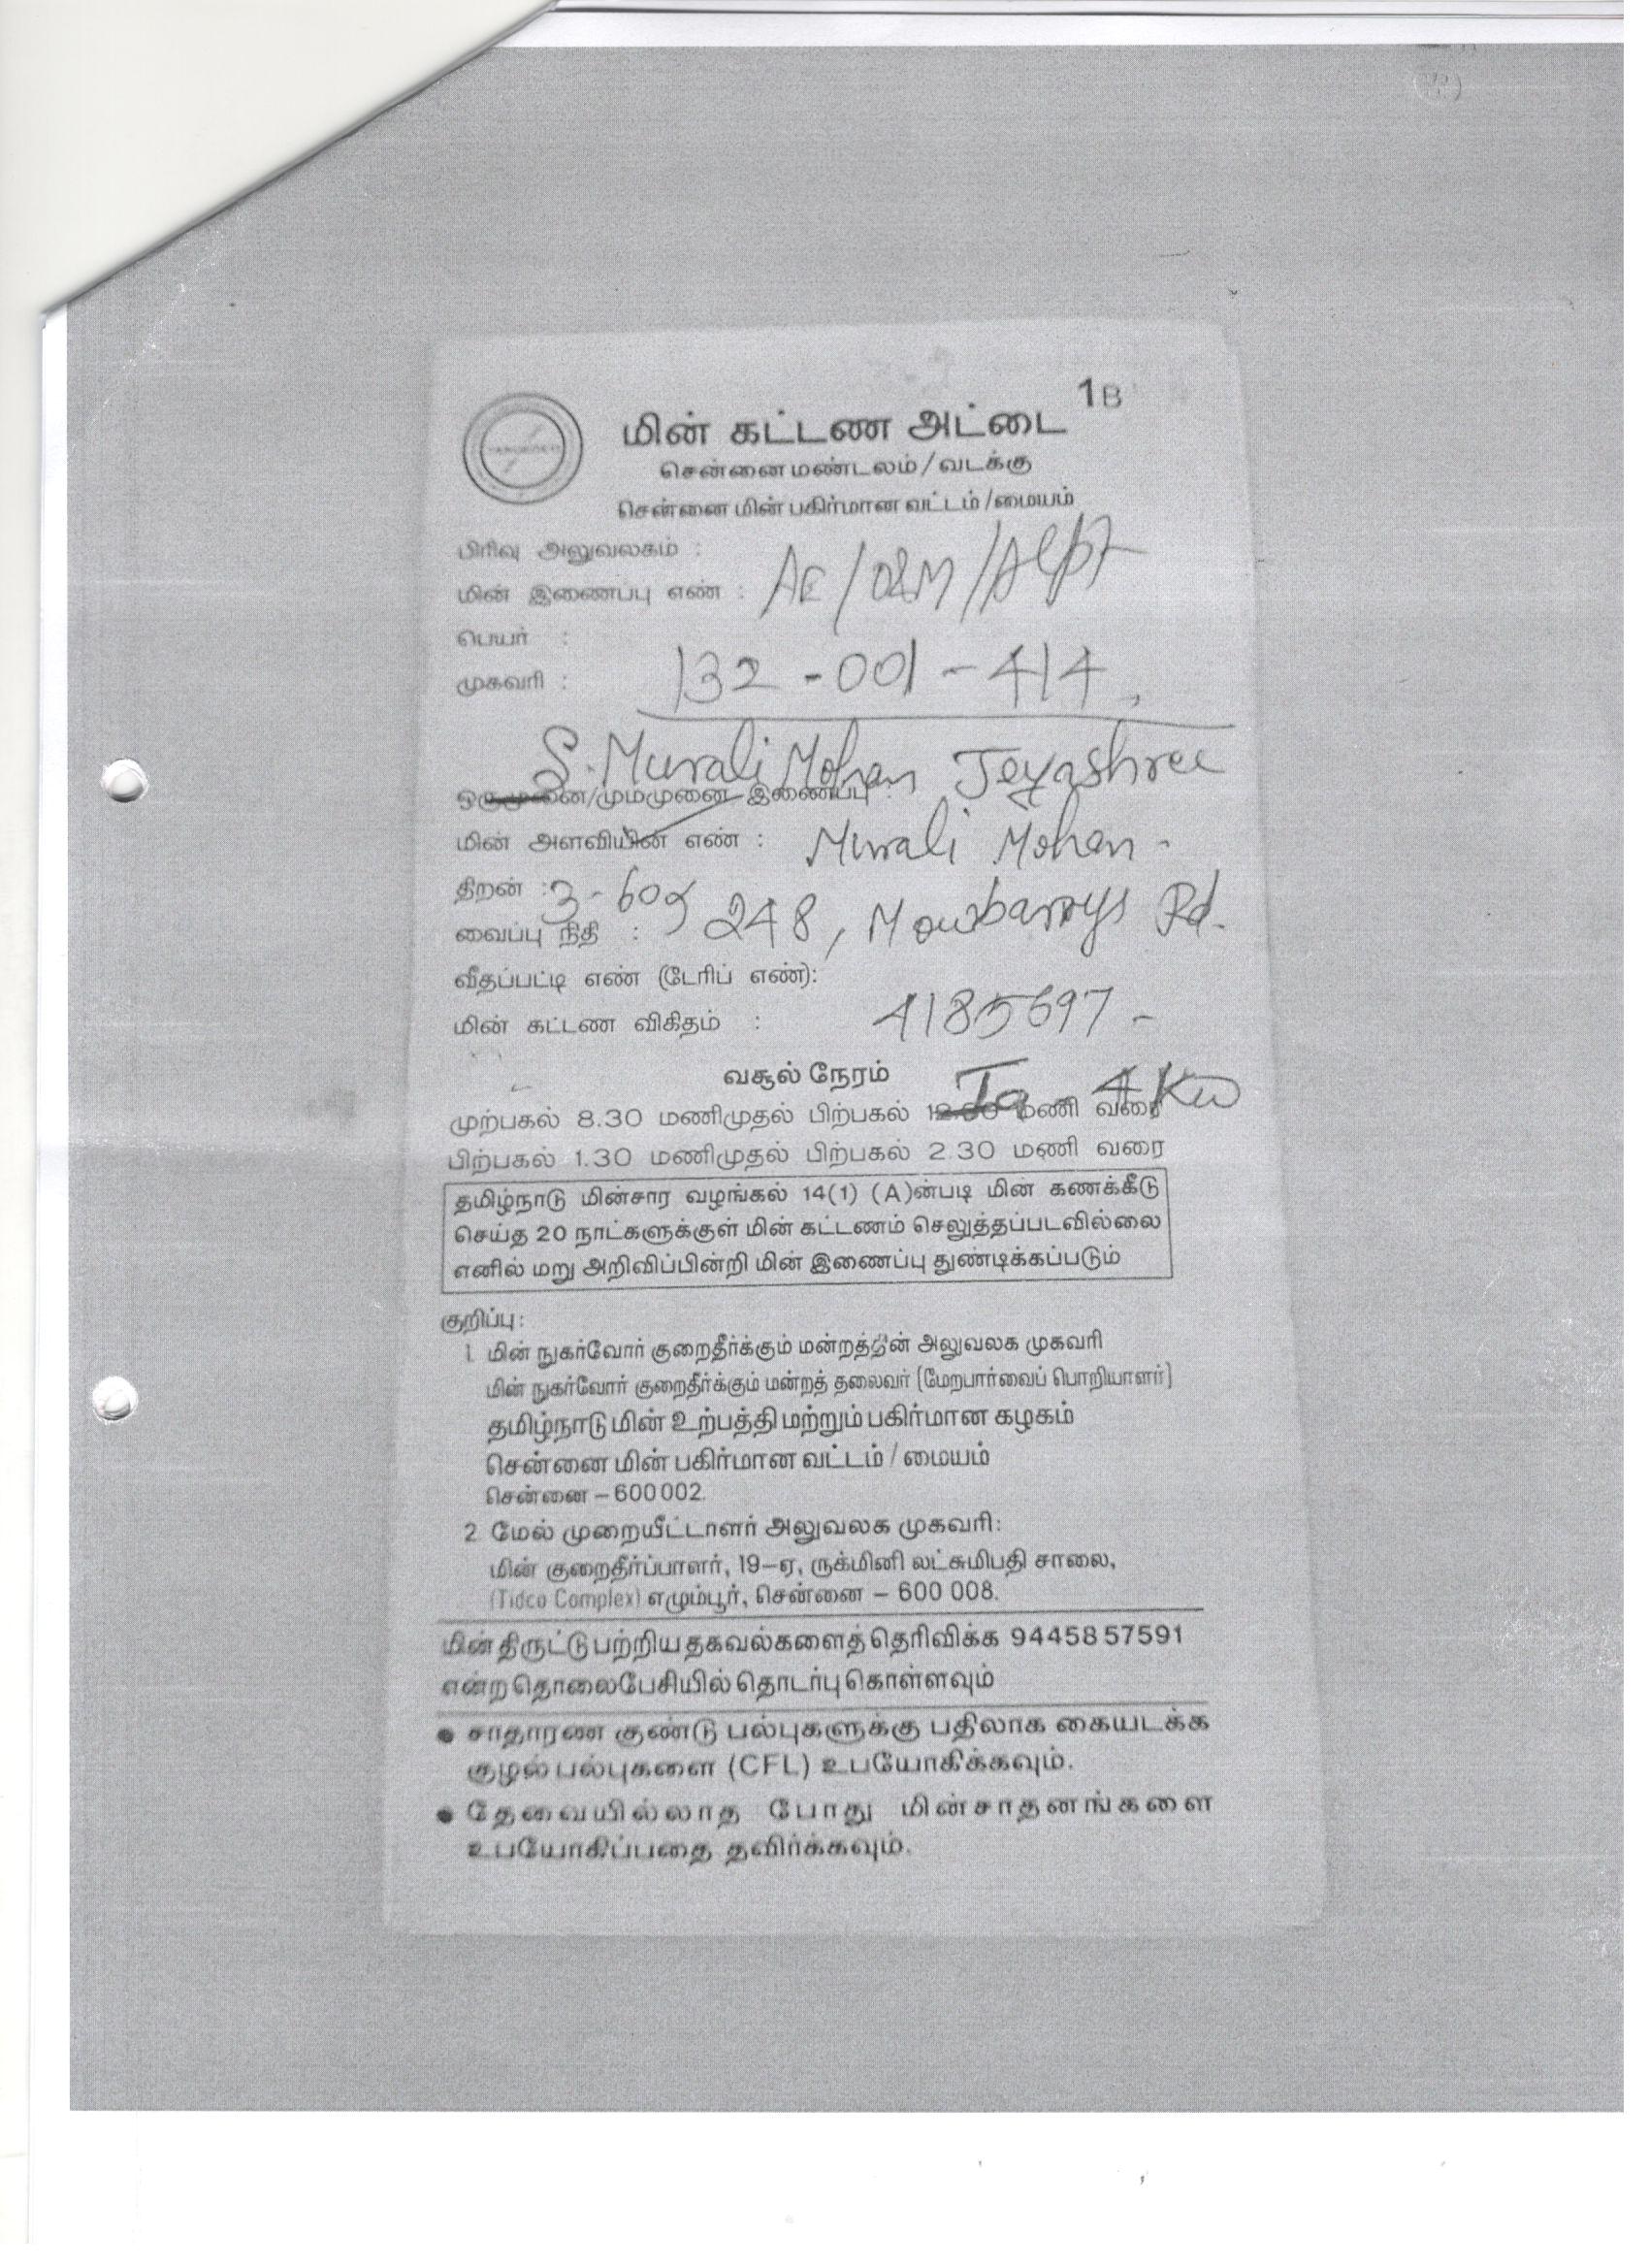 1B
மின் கட்டண அட்டை
சென்னை மண்டலம் / வடக்கு
சென்னை மின் பகிர்மான வட்டம் / மையம்
பிரிவு அலுவலகம் :
AE/O&M/Alpt
மின் இணைப்பு எண் :
பெயர் :
132-001-414,
முகவரி :
S. Murali Mohan Jeyashree
ஒருமுனை/மும்முனை இணைப்பு :
மின் அளவியின் எண் : Murali Mohan -
திறன் :
248, Mowbarrys Rd.
வைப்பு நிதி :
வீதப்பட்டி எண் (டேரிப் எண்):
மின் கட்டண விகிதம் : 4185697 -
வசூல் நேரம் Ia - 4 Kw
முற்பகல் 8.30 மணிமுதல் பிற்பகல் 12.30 மணி வரை
பிற்பகல் 1.30 மணிமுதல் பிற்பகல் 2.30 மணி வரை
தமிழ்நாடு மின்சார வழங்கல் 14(1) (A)ன்படி மின் கணக்கீடு
செய்த 20 நாட்களுக்குள் மின் கட்டணம் செலுத்தப்படவில்லை
எனில் மறு அறிவிப்பின்றி மின் இணைப்பு துண்டிக்கப்படும்
குறிப்பு:
1. மின் நுகர்வோர் குறைதீர்க்கும் மன்றத்தின் அலுவலக முகவரி
மின் நுகர்வோர் குறைதீர்க்கும் மன்றத் தலைவர் (மேற்பார்வைப் பொறியாளர்)
தமிழ்நாடு மின் உற்பத்தி மற்றும் பகிர்மான கழகம்
சென்னை மின் பகிர்மான வட்டம் / மையம்
சென்னை – 600 002.
2. மேல் முறையீட்டாளர் அலுவலக முகவரி:
மின் குறைதீர்ப்பாளர், 19–ஏ, ருக்மினி லட்சுமிபதி சாலை,
(Tidco Complex) எழும்பூர், சென்னை – 600 008.
மின் திருட்டு பற்றிய தகவல்களைத் தெரிவிக்க 94458 57591
என்ற தொலைபேசியில் தொடர்பு கொள்ளவும்
● சாதாரண குண்டு பல்புகளுக்கு பதிலாக கையடக்க
குழல் பல்புகளை (CFL) உபயோகிக்கவும்.
● தேவையில்லாத போது மின்சாதனங்களை
உபயோகிப்பதை தவிர்க்கவும்.